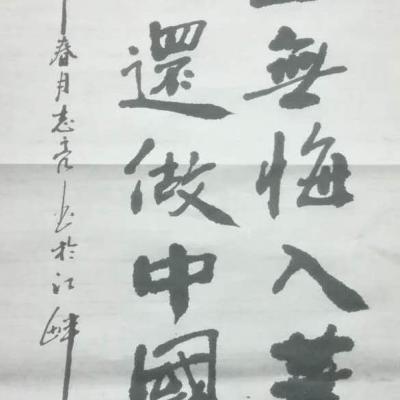 無悔入華
還做中國
春月志亮书於江畔